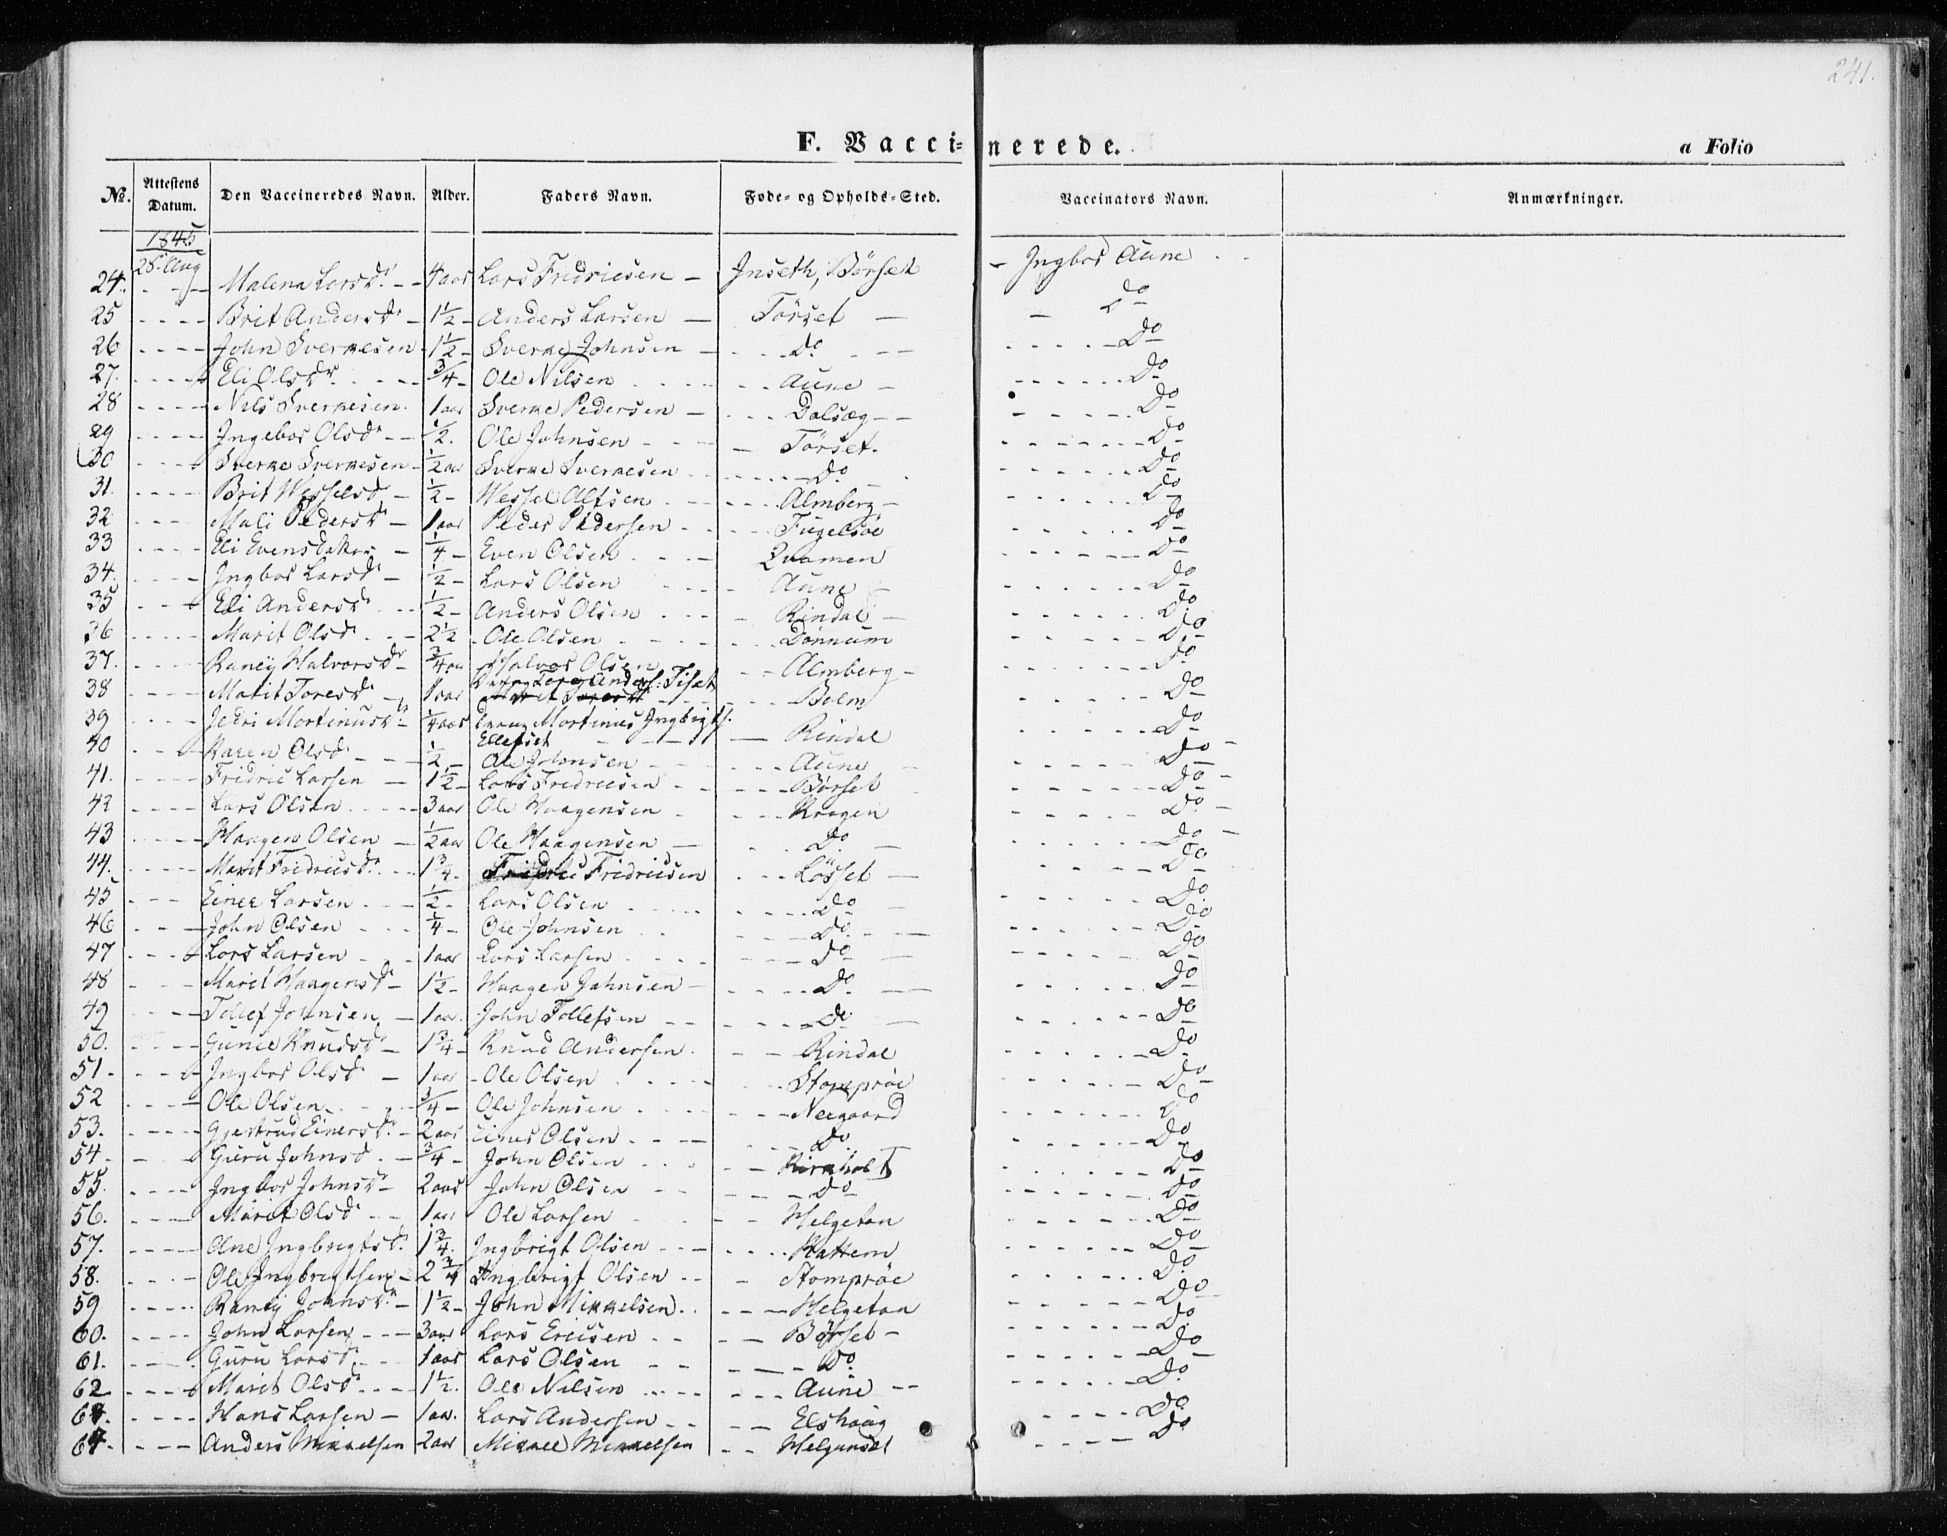 241.
F. Vaccinerede. a Folio
No. Attestens Datum. Den Vaccineredes Navn. Alder. Faders Navn. Føde- og Opholds-Sted. Vaccinators Navn. Anmærkninger.
1845
25 Aug
24. Malena Larsdr 4 aar Lars Fredricsen Inseth, Børset Ingbor Aune
25 Brit Andersdr 1½ Anders Larsen Törset Do
26 John Sverkesen 1½ Sverke Johnsen Do Do
27. Eli Olsdr ¾ Ole Nilsen Aune Do
28 Nils Sverkesen 1 aar Sverke Pedersen Dalsæg Do
29 Ingebor Olsdr ½ Ole Johnsen Törset. Do
30 Sverke Sverkesen ½ aar Sverke Sverkesen Do Do
31. Brit Wesselsd ½ Wessel Alfsen Almberg Do
32 Mali Pedersdr 1 aar Peder Pedersen Fugelsöe Do
33 Eli Evensdatter ¼ Even Olsen Qvamen Do
34. Ingbor Larsdr ½ Lars Olsen Aune Do
35 Eli Andersdr ½ Anders Olsen Rindal Do
36 Marit Olsdr 2½ Ole Olsen Dönnum Do
37. Raney Halvorsdr ¾ aar Halvor Olsen Almberg Do
38 Marit Toresdr 1 aar Tore Anders: Tiset Bolm Do
39 Mortinusdr ¼ aar Mortinus Ingbrigts. Ellefset Rindal Do
40 Karen Olsd ½ Ole Johnsen Aune Do
41. Fredric Larsen 1½ Lars Fredricsen Børset Do
42 Lars Olsen 3 aar Ole Haagensen Krogen Do
43 Haagen Olsen ½ aar Ole Haagensen Do Do
44. Marit Fredricsdr 1¾ Fredricsen Lösset Do
45 Einer Larsen ½ Lars Olsen Do Do
46 John Olsen ¼ Ole Johnsen Do Do
47 Lars Larsen 1 aar Lars Larsen Do Do
48 Marit Haagensdr 1½ Haagen Johnsen Do Do
49 Tollef Johnsen 1 aar. John Tollefsen Do Do
50. Gunil Knudsdr 1¾ Knud Andersen Rindal Do
51. Ingbor Olsdr 1 aar Ole Olsen Stomprøe Do
52 Ole Olsen ¾ Ole Johnsen Neegaard Do
53. Gjertrud Einersdr 2 aar Einer Olsen Do Do
54. Guru Johnsd ¾ John Olsen Kirkholt Do
55. Ingbor Johnsdr 2 aar John Olsen Do Do
56. Marit Olsd 1 aar Ole Larsen Helgetan Do
57. Ane Ingbrigtsdr 1¾ Ingbrigt Olsen Kattem Do
58. Ole Ingbrigtsen 2¾ Ingbrigt Olsen Stomprøe Do
59 Raney Johnsdr 1½ John Mikkelsen Helgetan Do
60. John Larsen 3 aar Lars Ericsen Børset Do
61. Guru Larsd 1 aar Lars Olsen Do Do
62 Marit Olsdr 1½ Ole Nilsen Aune Do
Hans Larsen 1 aar. Lars Andersen Elshaug Do
64 Anders Mikkelsen 2 aar Mikkel Mikkelsen Helgunset Do